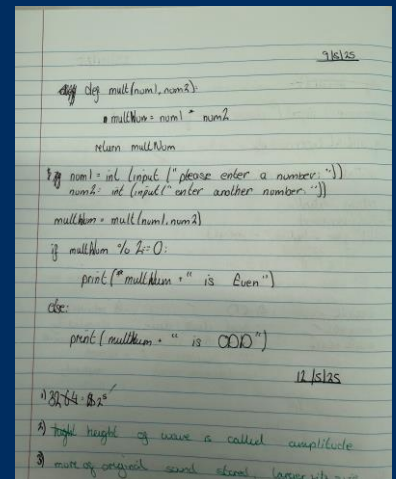 9/5/25
def mult(num1, num2):
multNum = num1 * num2
return multNum
num1 = int (input ("please enter a number: "))
num2 = int (input ("enter another number: "))
multNum = mult(num1, num2)
if multNum % 2 == 0:
print ( multNum + " is Even")
else:
print ( multNum + " is ODD")
12/5/25
1)
2) height of wave is called amplitude
3) more of original sound stored, larger